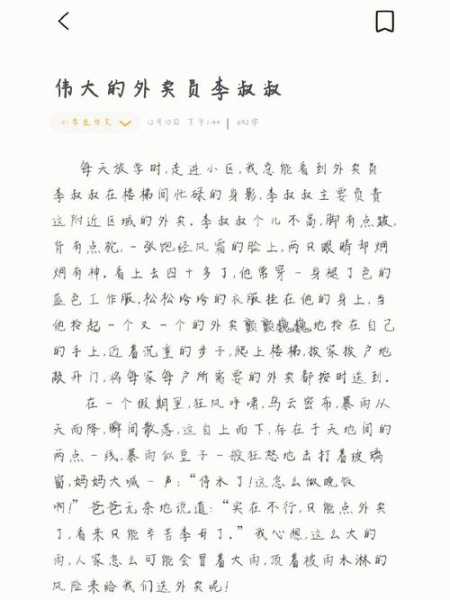 伟大的外卖员李叔叔
12月10日 下午1:44 | 692字
每天放学时,走进小区,我总能看到外卖员
李叔叔在楼梯间忙碌的身影,李叔叔主要负责
这附近区域的外卖。李叔叔个儿不高,脚有点跛,
背有点驼,一张饱经风霜的脸上,两只眼睛却炯
炯有神。看上去四十多了,他常穿一身褪了色的
蓝色工作服,松松垮垮的衣服挂在他的身上,当
他拎起一个又一个的外卖颤颤巍巍地拎在自己
的手上,迈着沉重的步子,爬上楼梯,挨家挨户地
敲开门,将每家每户所需要的外卖都按时送到。
在一个假期里,狂风呼啸,乌云密布,暴雨从
天而降,瞬间散落,这自上而下,存在于天地间的
两点一线,暴雨似豆子一般狂怒地击打着玻璃
窗,妈妈大喊一声:“停水了!这怎么做晚饭
啊!”爸爸无奈地说道:“实在不行,只能点外卖
了,看来只能辛苦李哥了。”我心想,这么大的
雨,人家怎么可能会冒着大雨,顶着被雨水淋的
风险来给我们送外卖呢!